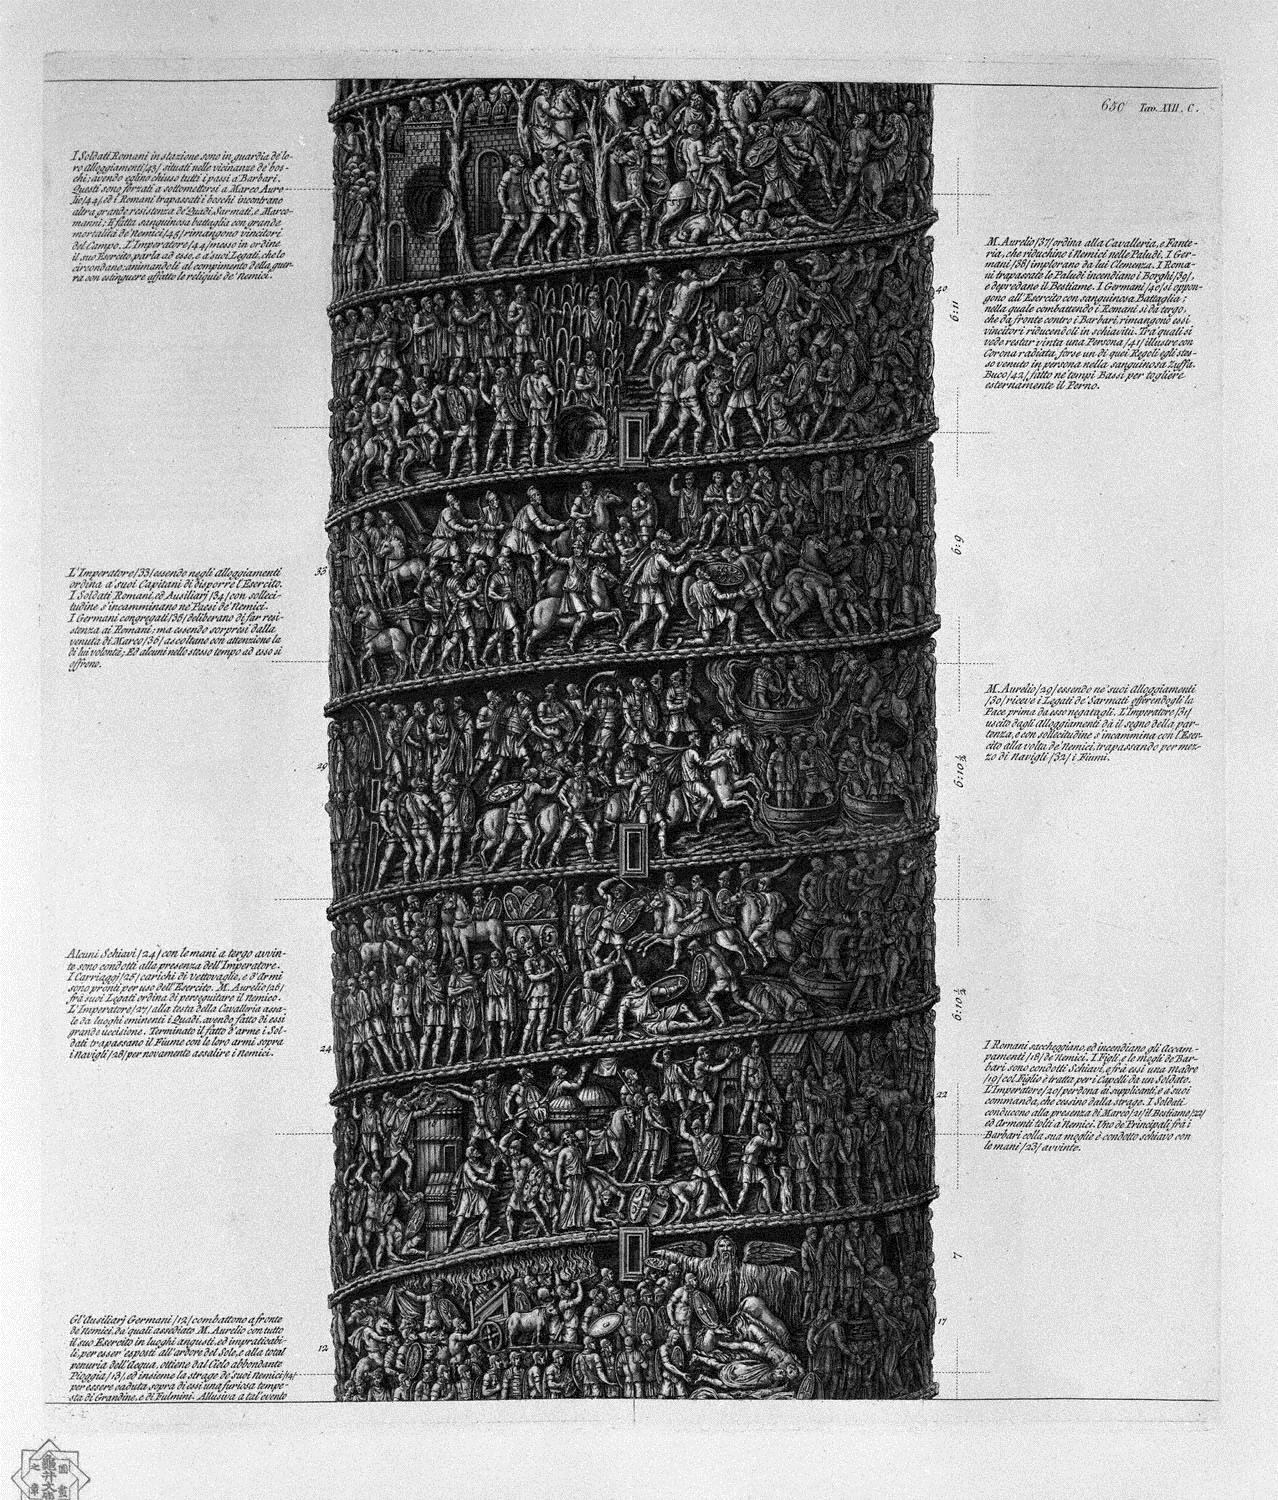 650 Tav. XXII. C.
I Soldati Romani in stazione sono in guardia de' lo-
ro alloggiamenti /43/ situati nelle vicinanze de' bos-
chi; avendo eglino chiuso tutti i passi a' Barbari.
Questi sono forzati a sottomettersi a Marco Aure-
lio /44/, ed i Romani trapassati i boschi incontrano
altra grande resistenza de' Quadi, Sarmati, e Marco-
manni; E fatta sanguinosa battaglia con grande
mortalità de' Nemici /45/ rimangono vincitori
del Campo. L'Imperatore /44/ messo in ordine
il suo Esercito, parla ad esso, e a' suoi Legati, che lo
circondano; animandoli al compimento della guer-
ra con estinguere affatto le reliquie de' Nemici.
M. Aurelio /37/ ordina alla Cavalleria, e Fante-
ria, che riduchino i Nemici nelle Paludi. I Ger-
mani /38/ implorano da lui Clemenza. I Roma-
ni trapassate le Paludi incendiano i Borghi /39/,
e depredano il Bestiame. I Germani /40/ si oppon-
gono all'Esercito con sanguinosa Battaglia;
nella quale combattendo i Romani sì da tergo,
che da fronte contro i Barbari, rimangono essi
vincitori riducendoli in schiavitù. Tra quali si
vede restar vinta una Persona /41/ illustre con
Corona radiata, forse un di quei Regoli egli stes-
so venuto in persona nella sanguinosa Zuffa.
Buco /42/ fatto ne' tempi Bassi per togliere
esternamente il Perno.
40
6:11
L'Imperatore /33/ essendo negli alloggiamenti
ordina a' suoi Capitani di disporre l'Esercito.
I Soldati Romani, ed Ausiliarj /34/ con solleci-
tudine s'incamminano ne' Paesi de' Nemici.
I Germani congregati /35/ deliberano di far resi-
stenza ai Romani; ma essendo sorpresi dalla
venuta di Marco /36/ ascoltano con attenzione la
di lui volontà; Ed alcuni nello stesso tempo ad esso si
offrono.
33
6:9
M. Aurelio /29/ essendo ne' suoi Alloggiamenti
/30/ riceve i Legati de' Sarmati offerendogli la
Pace prima da esso negatagli. L'Imperatore /31/
uscito dagli Alloggiamenti dà il segno della par-
tenza, e con sollecitudine s'incammina con l'Eser-
cito alla volta de' Nemici, trapassando per mez-
zo di Navigli /32/ i Fiumi.
29
6:10 ½
Alcuni Schiavi /24/ con le mani a tergo avvin-
te sono condotti alla presenza dell'Imperatore.
I Carriaggi /25/ carichi di vettovaglie, e d'Armi
sono pronti per uso dell'Esercito. M. Aurelio /26/
frà suoi Legati ordina di perseguitare il nemico.
L'Imperatore /27/ alla testa della Cavalleria assa-
le da luoghi eminenti i Quadi, avendo fatto di essi
grande uccisione. Terminato il fatto d'arme i Sol-
dati trapassano il Fiume con le loro armi sopra
i Navigli /28/ per novamente assalire i nemici.
24
6:10 ½
I Romani saccheggiano, ed incendiano gli Accam-
pamenti /18/ de' Nemici. I Figli, e le mogli de' Bar-
bari sono condotti Schiavi, e frà essi una madre
/19/ col Figlio è tratta per i Capelli da un Soldato.
L'Imperatore /20/ perdona ai supplicanti, e a' suoi
commanda, che cessino dalla strage. I Soldati
conducono alla presenza di Marco /21/ il Bestiame /22/
ed Armenti tolti a' Nemici. Uno de' Principali frà i
Barbari colla sua moglie è condotto schiavo con
le mani /23/ avvinte.
22
7
Gl'Ausiliarj Germani /12/ combattono a fronte
de' nemici, da' quali assediato M. Aurelio con tutto
il suo Esercito in luoghi angusti, ed impraticabi-
li, per esser esposti all'ardore del Sole, e alla total
penuria dell'Acqua, ottiene dal Cielo abbondante
Pioggia /13/, ed insieme la strage de' suoi Nemici /14/
per essere caduta sopra di essi una furiosa tempe-
sta di Grandine, e di Fulmini. Allusiva a tal evento
12
17